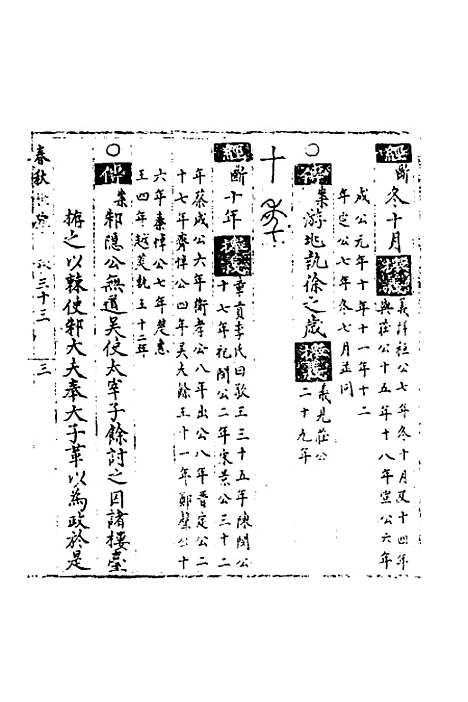 經斷冬十月撰義義詳桓公七年冬十月及十四年
與莊公十五年十八年宣公六年
成公元年十年十一年十二
年定公七年冬七月並同
傳案游地說徐之歲撰義義見莊公
二十九年
十年
經斷十年撰義章貢李氏曰敬王三十五年陳閔公
十七年杞閔公二年宋景公三十二
年蔡成公六年衛孝公八年出公八年晉定公二
十七年齊悼公四年吳夫餘王十一年鄭聲公十
六年秦悼公七年楚惠
王四年越踐執王十二年
傳案邾隱公無道吳使太宰子餘討之囚諸樓臺
栫之以棘使邾大夫奉大子革以為政於是
春秋 三十三 三